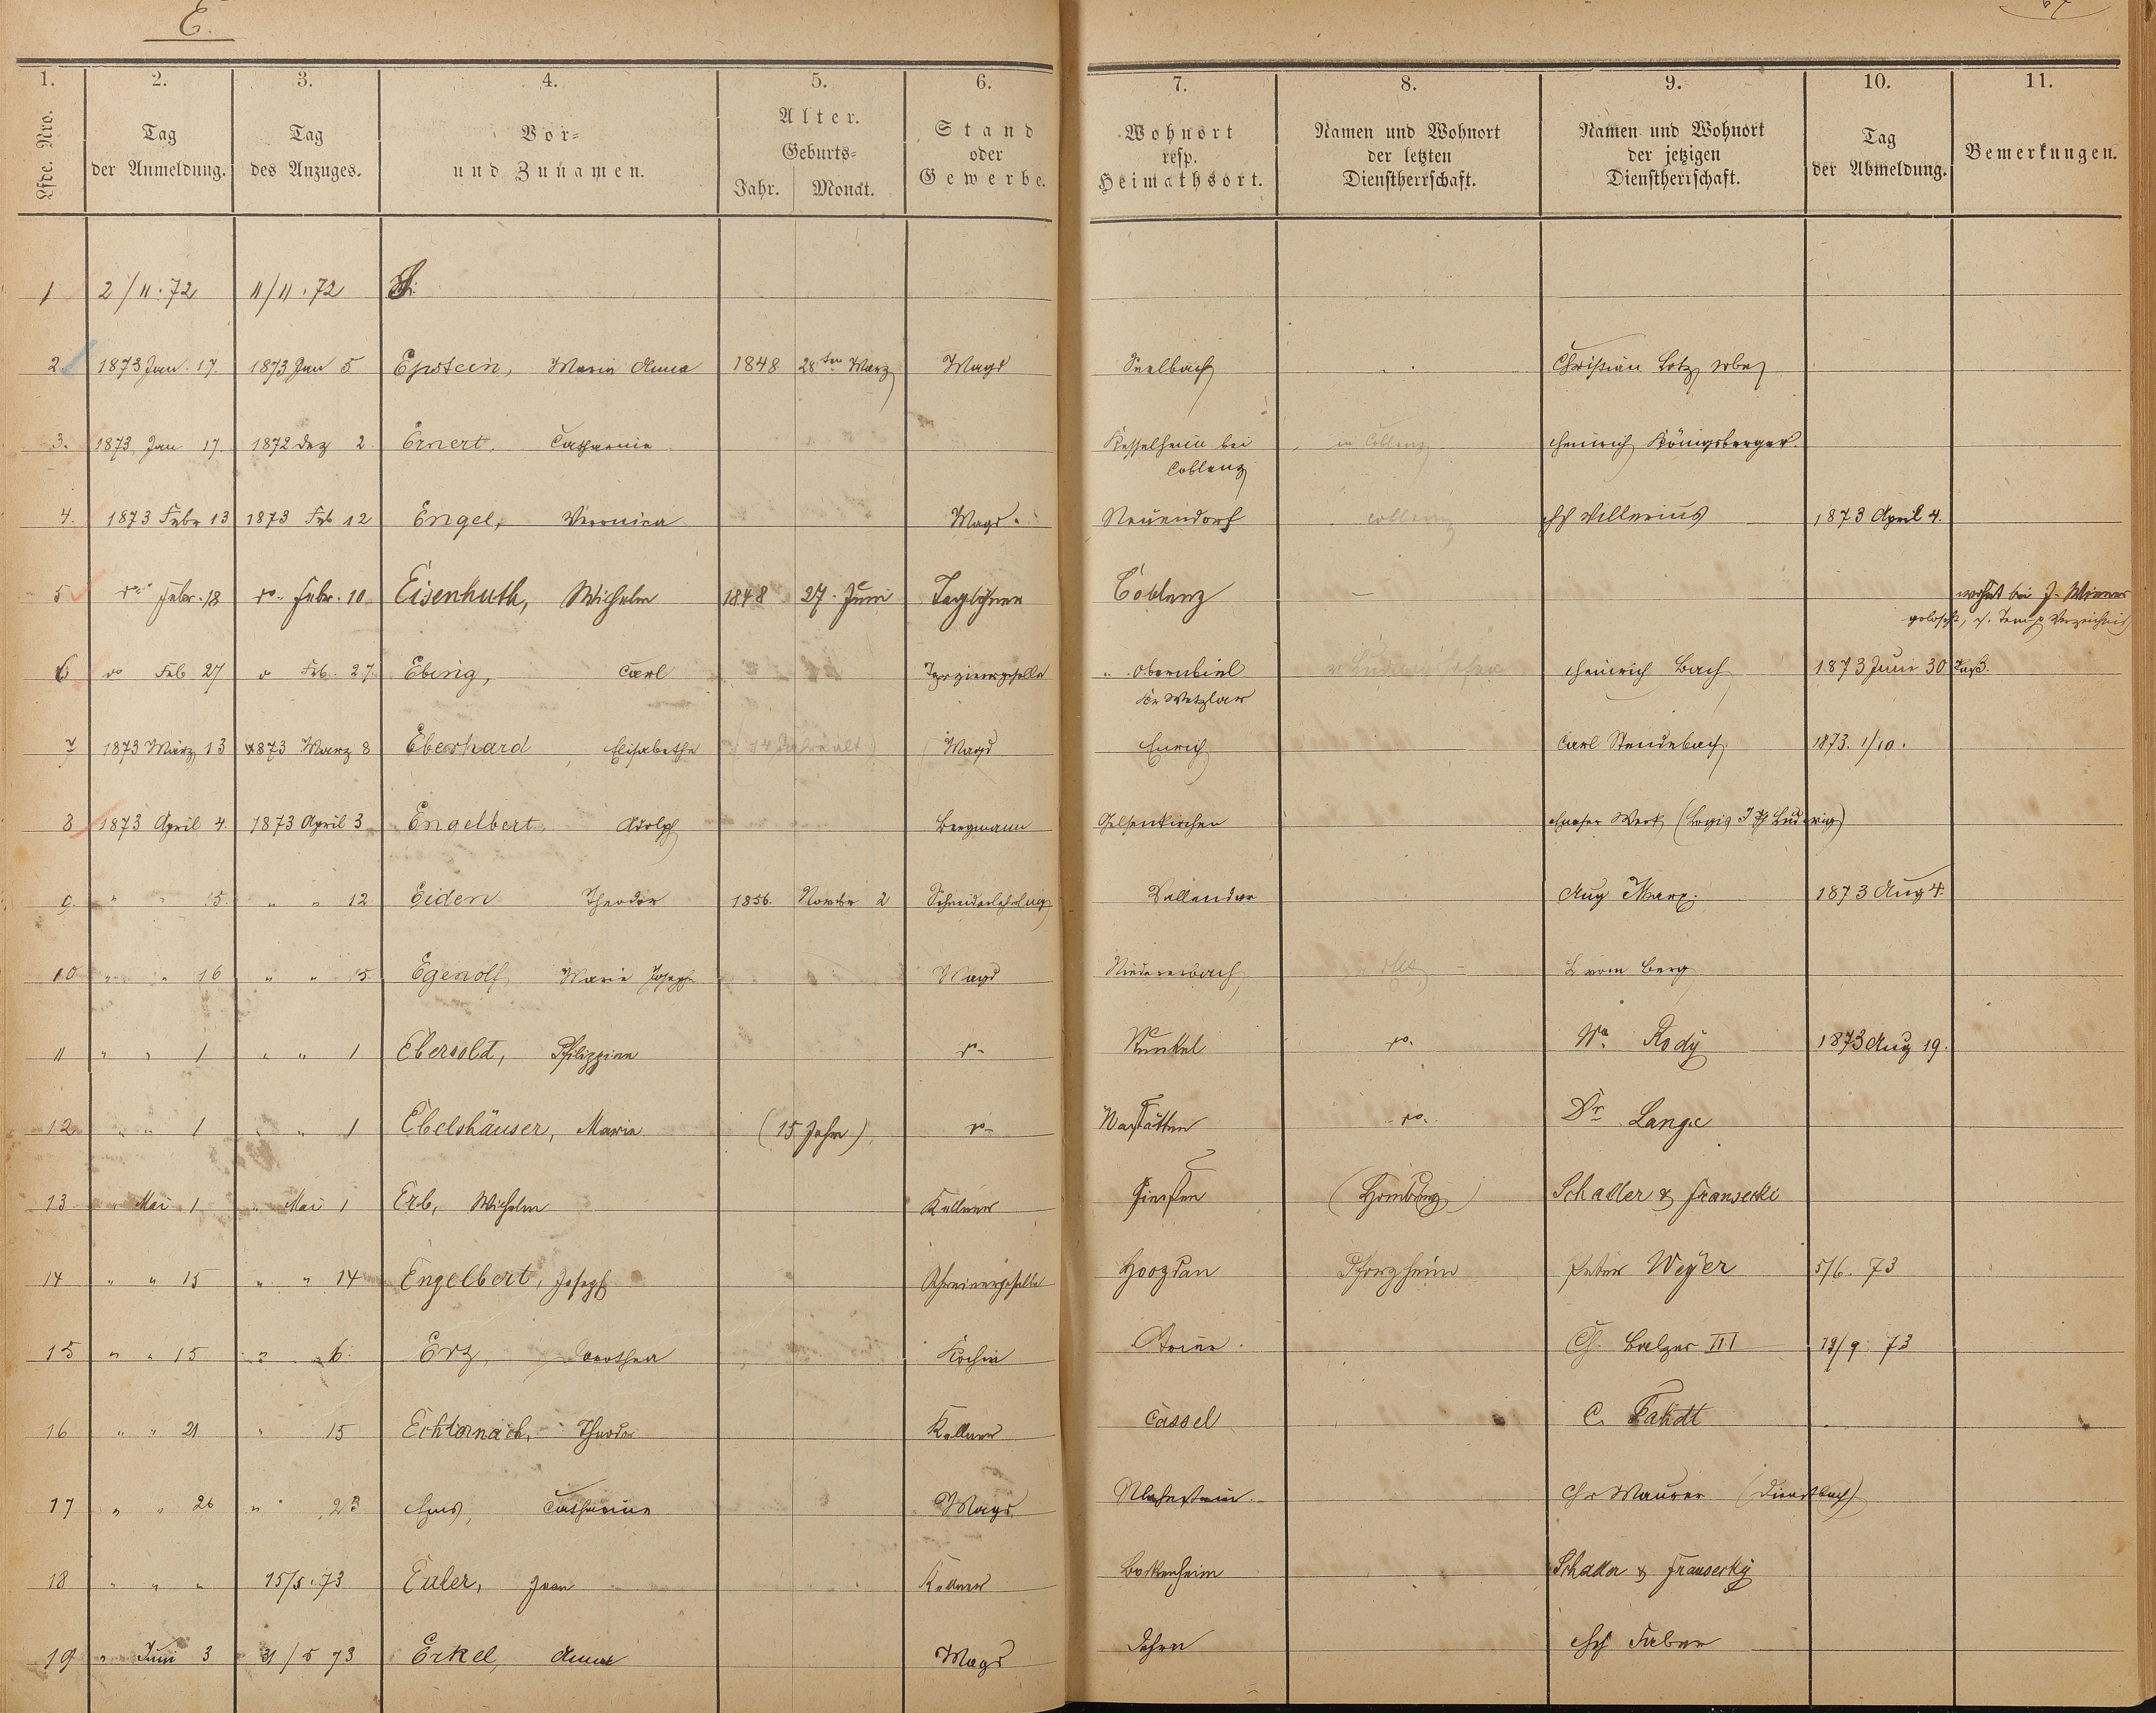 E.
1. 2. 3. 4. 5. 6. 7. 8. 9. 10. 11.
Lfde. Nro. Tag der Anmeldung. Tag des Anzuges. Vor- und Zunamen. Alter. Geburts- Jahr. Monat. Stand oder Gewerbe. Wohnort resp. Heimathsort. Namen und Wohnort der letzten Dienstherrschaft. Namen und Wohnort der jetzigen Dienstherrschaft. Tag der Abmeldung. Bemerkungen.
1 2/11.72 11/11.72
2 1873 Jan. 17. 1873 Jan 5 Epstein, Maria Anna 1848 28ten März Magd Seelbach Christian Lotz
3. 1873 Jan 17. 1872 Dez 2 Ernert, Catharina Kesselheim bei in Coblenz Heinrich Königsberger.
Coblenz
4. 1873 Febr 13 1873 Feb 12 Engel, Veronica Magd. Neuendorf Coblenz Villerius 1873 April 4.
5 do Febr. 18 do Febr. 10 Eisenhuth, Wilhelm 1848 27. Juni Taglöhner Coblenz wohnt bei J. Wiemer
gelöscht, s. Temp Verzeichnis
6 do Feb 27 do Feb. 27 Ebing, Carl Tapeziergeselle Obernbiel Heinrich Bach 1873 Juni 30 Paß.
Kr Wetzlar
7 1873 März 13 1873 März 8 Eberhard, Elisabetha (14 Jahre alt) Magd Emrich Carl Stendebach 1873. 1/10.
8 1873 April 4. 1873 April 3 Engelbert, Adolph Bergmann Gelsenkirchen Werk (Logis Ludwig)
9 " " 15. " " 12 Eiden Theodor 1856. Novbr 2 Schneiderlehrling Vallendar Aug Marx. 1873 Aug 4.
10 " " 16 " " 15 Egenolf, Marie Joseph Magd Niedererbach L vom Berg
11 " " 1 " " 1 Ebersold, Philippine do Runkel do. Wa. Rody 1873 Aug 19.
12 " " 1 " " 1 Ebelshäuser, Maria (15 Jahre) do Nastätten do. Dr. Lange
13 " Mai 1 " Mai 1 Erb, Wilhelm Kellner Giessen (Homburg) Schaller & Fransecki
14 " " 15 " " 14 Engelbert, Joseph Schreinergeselle Pforzheim Peter Weyer 5/6. 73
15 " " 15 " " 6. Erz, Dorothea Köchin Ch. Balzer III 12/9. 73
16 " " 21 " 15 Echternach, Theodor Kellner Cassel C. Fahdt
17 " " 26 " 23 Catharine Magd Chr Maurer (Dienstbach)
18 " " " 15/5.73 Euler, Jean Kellner Bockenheim Schaller & Fransecky
19 " Juni 3 31/5 73 Erkel, Anna Magd Dehrn Faber